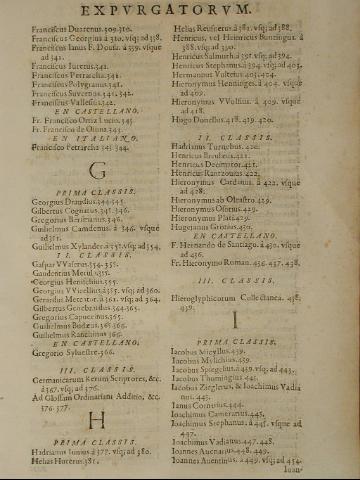 EXPVRGATORVM.
Franciscus Duarenus.309.310.
Franciscus Georgius à 310. vsq; ad 338.
Franciscus Ianus F. Dousæ. à 339. vsque
ad 341.
Franciscus Iuretus.341.
Franciscus Petrarcha.341.
Franciscus Polygranus.341.
Franciscus Suuertius.341.342.
Franciscus Vallesius.342.
EN CASTELLANO.
Fr. Francisco Ortiz Lucio.343.
Fr. Francisco de Ossuna.343.
EN ITALIANO.
Francisco Petrarcha.343.344.
G
PRIMA CLASSIS.
Georgius Draudius.344.345.
Gilbertus Cognatus.345.346.
Gregorius 346.
Guilielmus Camdenus. à 346. vsque
ad 351.
Guilielmus Xylander. à 351. vsq; ad 354.
II. CLASSIS.
Gaspar VVaserus.354.355.
Gaudentius Merul. 355.
Georgius Henischius.355.
Georgius VVicellius. à 355. vsq; ad 360.
Gerardus Mercator. à 361. vsq; ad 364.
Gilbertus Genebrardus.364.365.
Gregorius Capuccinus.365.
Guilielmus Budæus.365.366.
Guilielmus Ranchinus 366.
EN CASTELLANO.
Gregorio Syluestre.366.
III. CLASSIS.
Germanicarum Rerum Scriptores, &c.
à 367. vsq; ad 376.
Ad Glossam Ordinariam Additio, &c.
376.377.
H
PRIMA CLASSIS.
Hadrianus Iunius à 377. vsq; ad 380.
Helias Hutterus.381.
Helias Reusnerus. à 381. vsq; ad 388.
Henricus, vel Heinricus Buntingus. à
388. vsq; 391.
Henricus Salmuth. à 391. vsq; ad 394.
Henricus Stephanus. à 394. vsq; ad 403.
Hermannus Vulteius.403.404.
Hieronymus Henninges. à 404. vsque
ad 409.
Hieronymus VVolfius. à 409. vsque
ad 418.
Hugo Donellus.418.419.420.
II. CLASSIS.
Hadrianus Turnebus.420.
Henricus Brudæus.421.
Henricus 421.
Henricus Rantzouius.422.
Hieronymus Cardanus. à 422. vsque
ad 428.
Hieronymus ab Oleastro.429.
Hieronymus Osorius.429.
Hieronymus Plat.429.
Hugonis Grotius.430.
EN CASTELLANO.
F. Hernando de Santiago. à 430. vsque
ad 436.
Fr. Hieronymo Roman. 436.437.438.
III. CLASSIS.
Hieroglyphicorum Collectanea. 438.
439.
I
PRIMA CLASSIS.
Iacobus Micyllus.439.
Iacobus Mylichius.439.
Iacobus Spiegelius. à 439. vsq; ad 443.
Iacobus Thomingius.445.
Iacobus Zieglerus, & Ioachimus Vadia
nus. 445.
Ianus Cornarius.444.
Ioachimus Camerarius.445.
Ioachimus Stephanus. à 445. vsque ad
447.
Ioachimus Vadianus.447.448.
Ioannes Acunarius.448.449.
Ioannes Auentinus. à 449. vsq; ad 454.
Ioan-